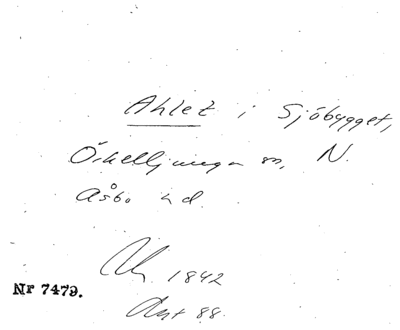 Ahlet i Sjöbygget,
Örkelljunga sn, N.
Åsbo hd.
1842
88.
Nr 7479.